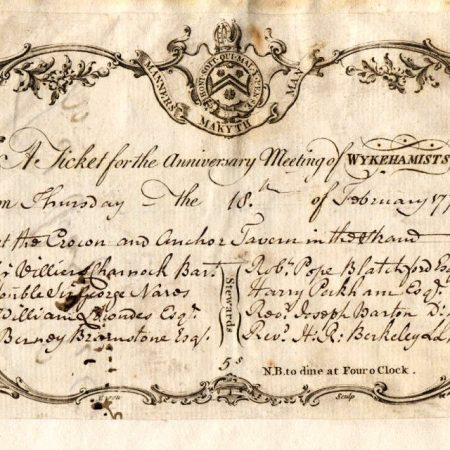 HONI·SOIT·QUI·MAL·Y·PENSE
MANNERS MAKYTH MAN
A Ticket for the Anniversary Meeting of WYKEHAMISTS
on Thursday the 18.th of February 177
at the Crown and Anchor Tavern in the Strand
Villiers Charnock Bar.t
Rob.t Pope Blatchford Esq
ouble Sir George Nares
Harry Peckham Esq.r
William Rhodes Esq.r
Rev.d Joseph Barton D
Berney Bramstone Esq.r
Rev.d H: R: Berkeley LLD
Stewards
5s
N.B. to dine at Four o Clock.
Sculp